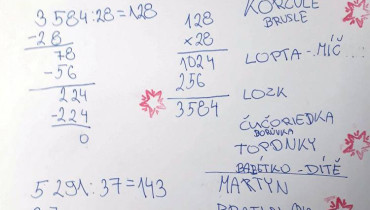 3584:28=128
-28
78
-56
224
-224
0
5291:37=143
128
x28
1024
256
3584
KORČULE
BRUSLE
LOPTA - MÍČ...
LOZK
ČUČORIEDKA
BORŮVKA
TOPÁNKY
BÁBÄTKO - DÍTĚ
MARTYN